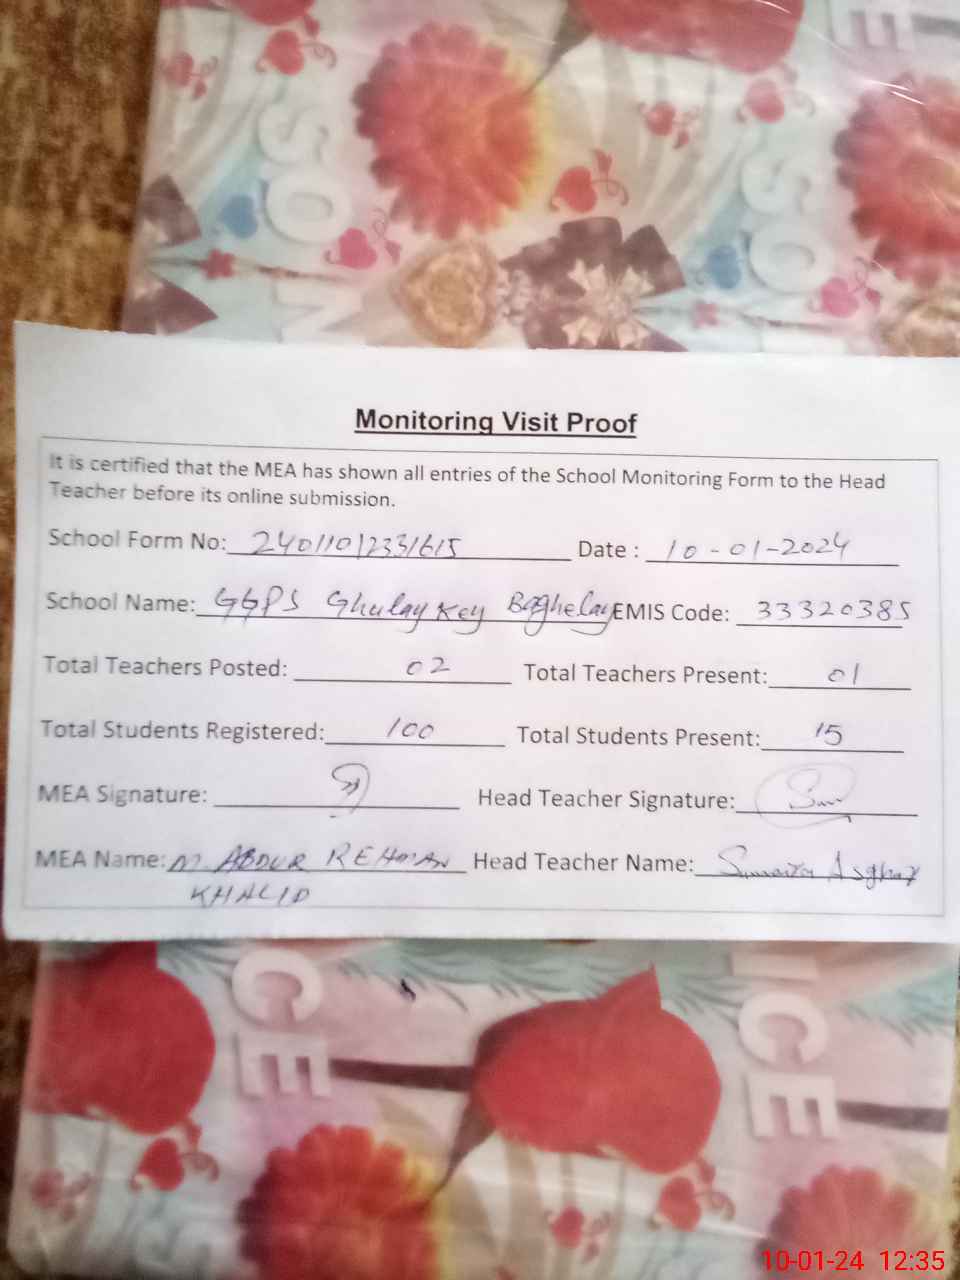 SO
SO
Monitoring Visit Proof
It is certified that the MEA has shown all entries of the School Monitoring Form to the Head
Teacher before its online submission.
School Form No: 24011012331615 Date : 10-01-2024
School Name: GGPS Ghulay Key Baghelay EMIS Code: 33320385
Total Teachers Posted: 02 Total Teachers Present: 01
Total Students Registered: 100 Total Students Present: 15
MEA Signature: Head Teacher Signature:
MEA Name: M. ABDUR REHMAN Head Teacher Name: Sumaira Asghar
KHALID
ICE
ICE
10-01-24 12:35